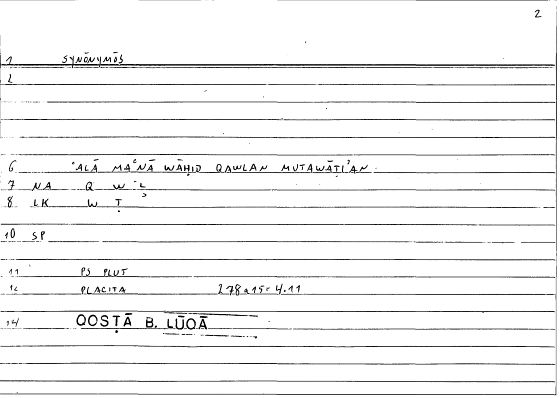 2
1 SYNŌNYMŌS
2
6 ʿALĀ MAʿNĀ WĀḤID QAWLAN MUTAWĀṬIʾAN
7 NA Q W L
8 LK W Ṭ ʾ
10 SP
11 PS PLUT
12 PLACITA 278a15= 4.11
14 QOSṬĀ B. LŪQĀ